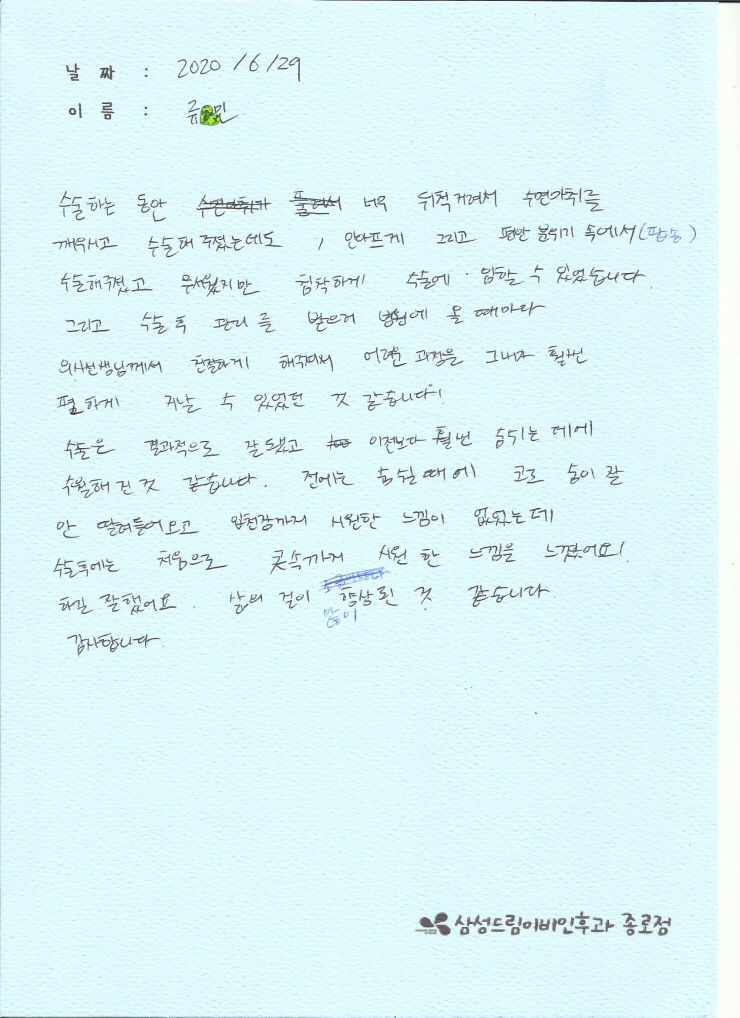 날 짜 : 2020 / 6 / 29
이 름 : 류 민
수술하는 동안 수면마취가 풀려서 너무 뒤척거려서 수면마취를
깨우시고 수술해 주셨는데도 , 안아프게 그리고 평안 분위기 속에서 (팝송)
수술해주셨고 무서웠지만 침착하게 수술에 임할 수 있었습니다.
그리고 수술 후 관리를 받으러 병원에 올 때마다
의사선생님께서 친절하게 해주셔서 어려운 과정을 그나마 훨씬
편하게 지낼 수 있었던 것 같습니다!
수술은 결과적으로 잘 됐고 이전보다 훨씬 숨쉬는 데에
수월해진 것 같습니다. 전에는 숨쉴 때에 코로 숨이 잘
안 딸려들어오고 입천장까지 시원한 느낌이 없었는데
수술후에는 처음으로 콧속까지 시원한 느낌을 느꼈어요!
하길 잘했어요. 삶의 질이 많이 향상된 것 같습니다.
감사합니다.
삼성드림이비인후과 종로점